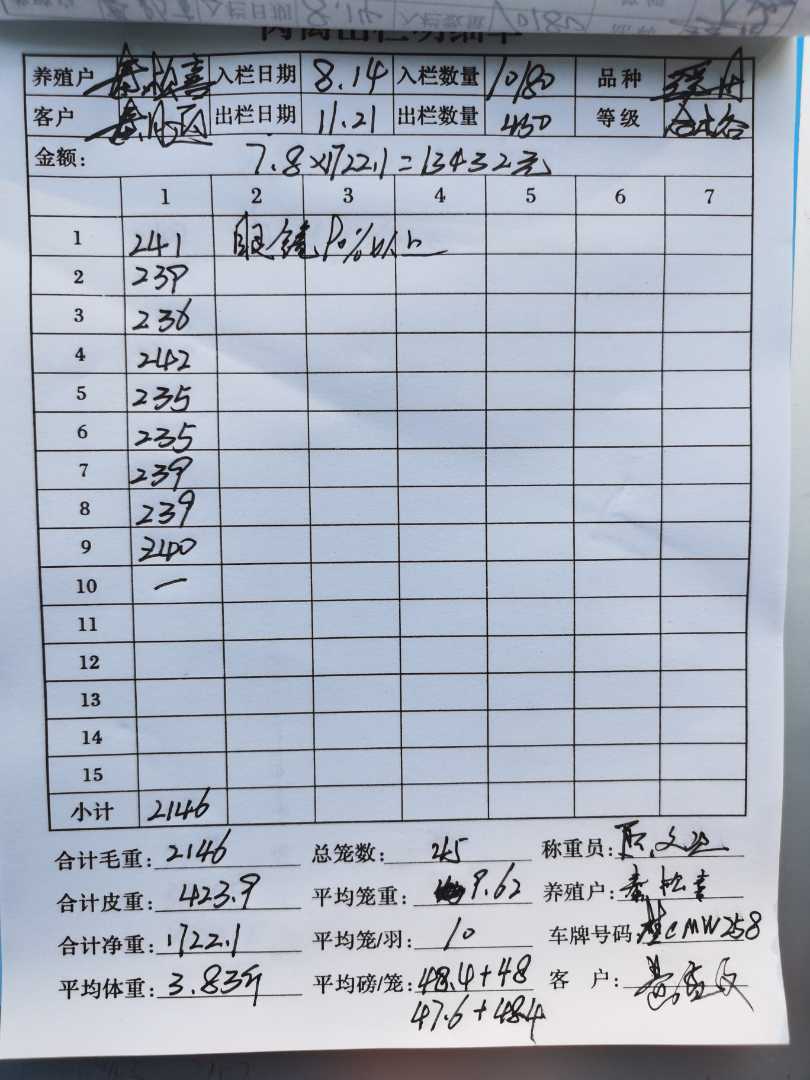 肉禽出栏明细单
养殖户 秦松喜 入栏日期 8.14 入栏数量 10180 品种
客户 出栏日期 11.21 出栏数量 450 等级 合格
金额: 7.8×1722.1=13432元
1 2 3 4 5 6 7
1 241 眼镜90%以上
2 239
3 236
4 242
5 235
6 235
7 239
8 239
9 240
10 一
11
12
13
14
15
小计 2146
合计毛重: 2146 总笼数: 45 称重员:
合计皮重: 423.9 平均笼重: 9.62 养殖户: 秦松喜
合计净重: 1722.1 平均笼/羽: 10 车牌号码: CMW258
平均体重: 3.83斤 平均磅/笼: 48.4+48 客 户:
47.6+48.4